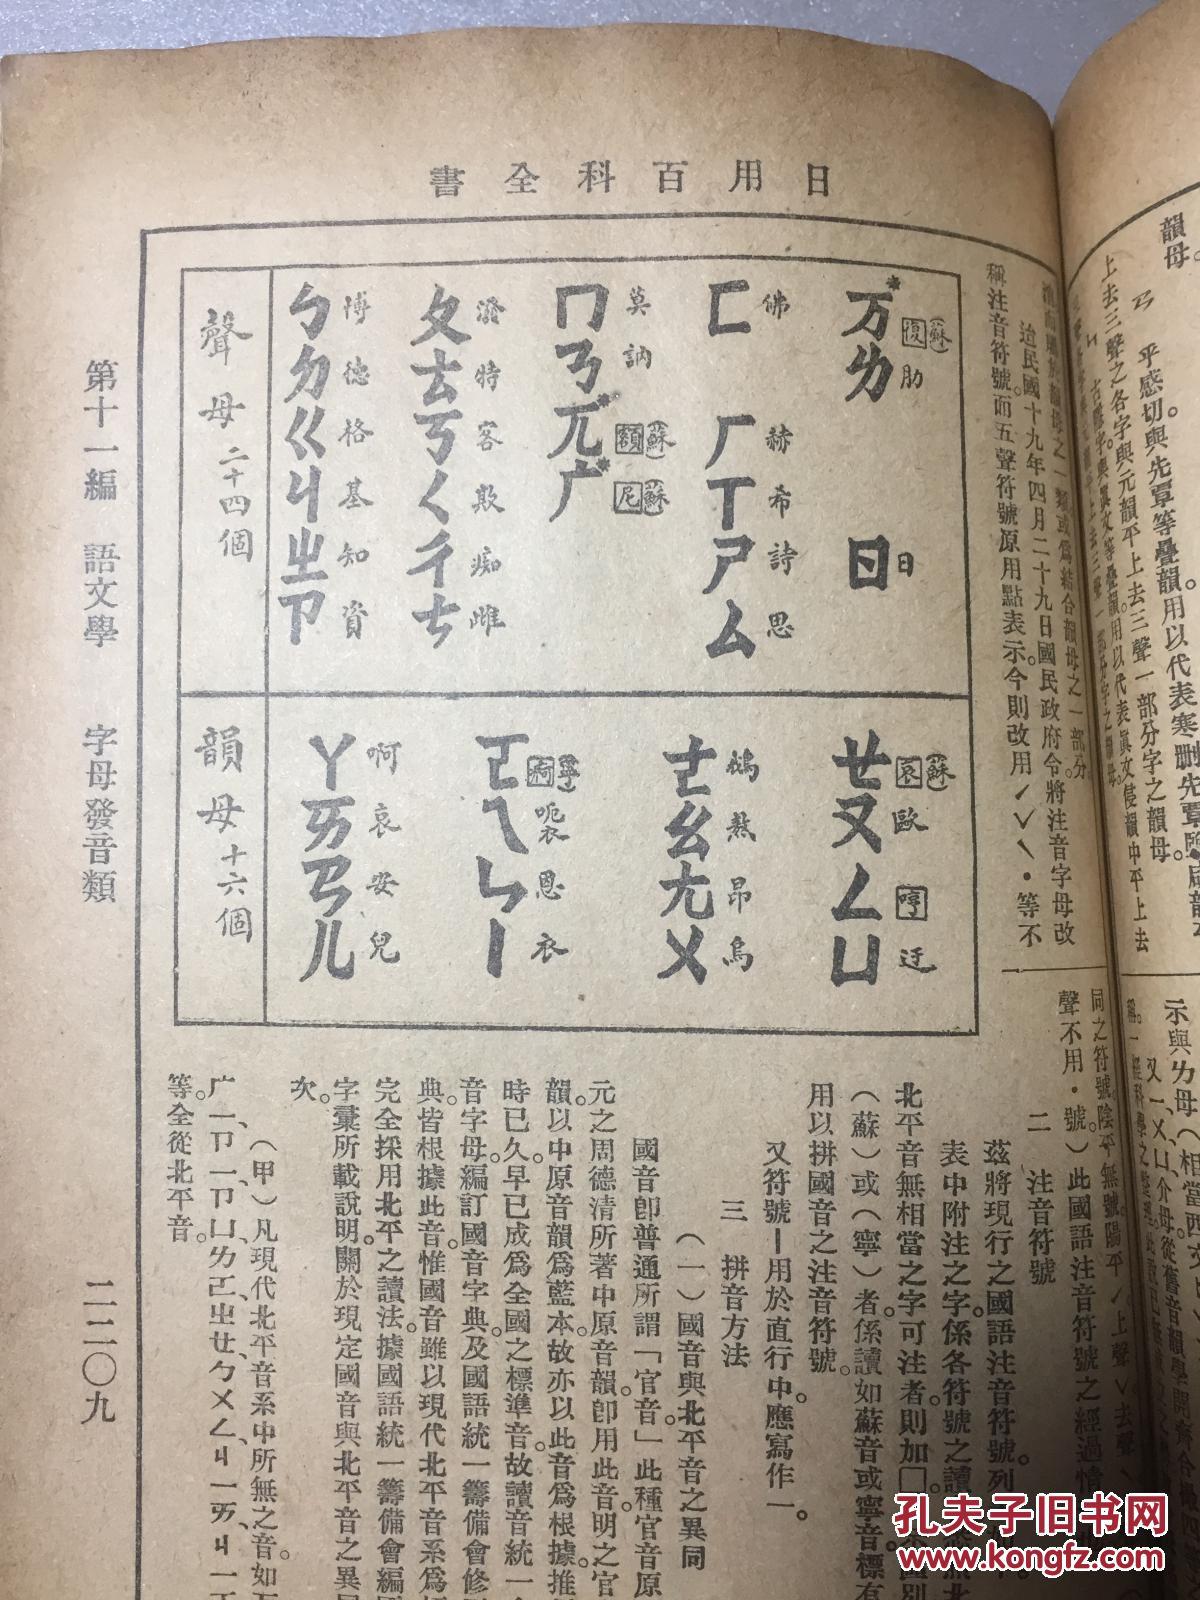 日用百科全書
韻母。
ㄢ　平感切與先覃等疊韻。用以代表寒刪先覃鹽咸韻
上去三聲之各字與元韻平上去三聲一部分字之韻母。
稱注音符號。而五聲符號原用點表示。今則改用ˊˇˋ・等不
迨民國十九年四月二十九日國民政府令將注音字母改
同之符號。陰平無號。陽平ˊ上聲ˇ去聲ˋ
聲不用・號。）此國語注音符號之經過情
聲母二十四個
ㄅㄉㄍㄐㄓㄗ
博德格基知資
ㄆㄊㄎㄑㄔㄘ
潑特客欺痴雌
ㄇㄋ兀*广*
莫訥（蘇）額（蘇）尼
ㄈㄏㄒㄕㄙ
佛赫希詩思
万*ㄌㄖ
（蘇）復肋日
韻母十六個
ㄚㄞㄢㄦ
啊哀安兒
ㄛㄟㄣㄧ
（寧）痾呃衣恩衣
ㄜㄠㄤㄨ
鵝熬昂烏
ㄝㄡㄥㄩ
（蘇）哀歐哼迂
二　注音符號
茲將現行之國語注音符號列
表中附注之字。係各符號之讀
北平音無相當之字可注者。則加□
（蘇）或（寧）者。係讀如蘇音或寧音。標有
用以拼國音之注音符號。
又符號ㄧ用於直行中。應寫作一。
三　拼音方法
（一）國音與北平音之異同
國音卽普通所謂「官音」此種官音原
元之周德清所著中原音韻。卽用此音。明之官
韻。以中原音韻爲藍本。故亦以此音爲根據。推
時已久。早已成爲全國之標準音。故讀音統一
音字母。編訂國音字典。及國語統一籌備會修
典。皆根據此音。惟國音雖以現代北平音系爲
完全採用北平之讀法。據國語統一籌備會編
字彙所載說明。關於現定國音與北平音之異
次。
（甲）凡現代北平音系中所無之音。如万
广ㄧ、ㄗㄧ、ㄗㄩ、ㄌㄛ、ㄓㄝ、ㄅㄨㄥ、ㄐㄧㄞ、ㄐㄧㄛ
等。全從北平音。
第十一編　語文學　字母發音類
二二〇九
孔夫子旧书网
www.kongfz.com